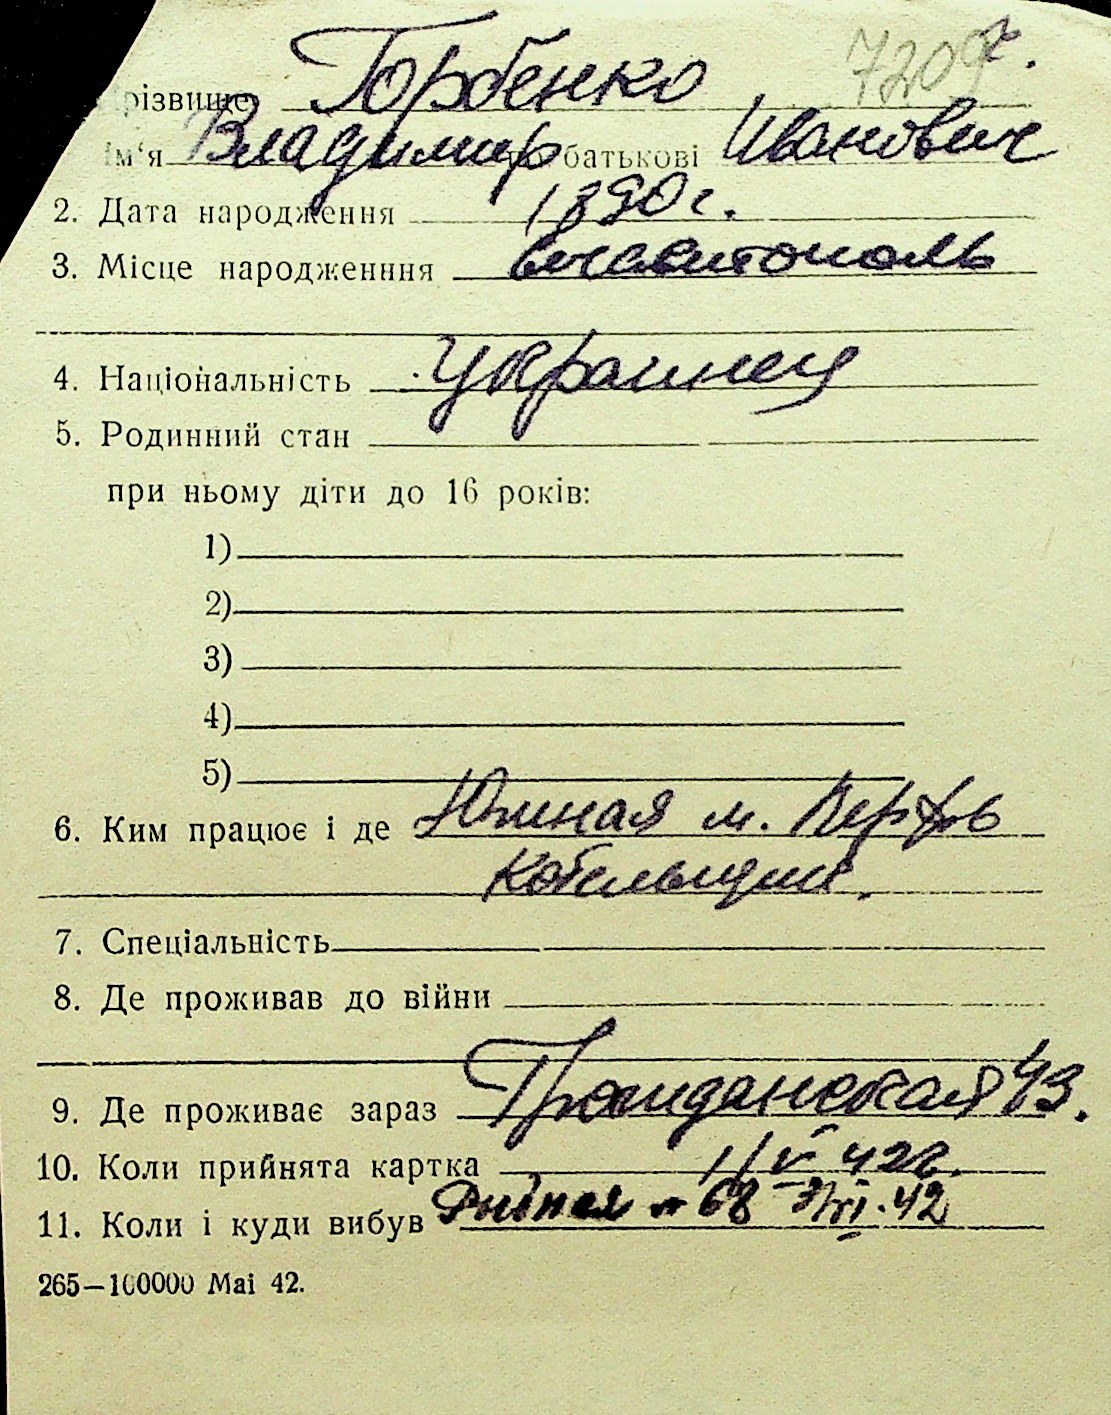 7209
різвище Горбенко
ім‘я Владимир по батькові Иванович
2. Дата народження 1890 г.
3. Місце народженння
4. Національність Украинец
5. Родинний стан
при ньому діти до 16 років:
1)
2)
3)
4)
5)
6. Ким працює і де Южная м. Верфь
Котельщик.
7. Спеціальність
8. Де проживав до війни
9. Де проживає зараз Гражданская 43.
10. Коли прийнята картка 1/V 42г.
11. Коли і куди вибув Рыбная 68 42
265—100000 Mai 42.